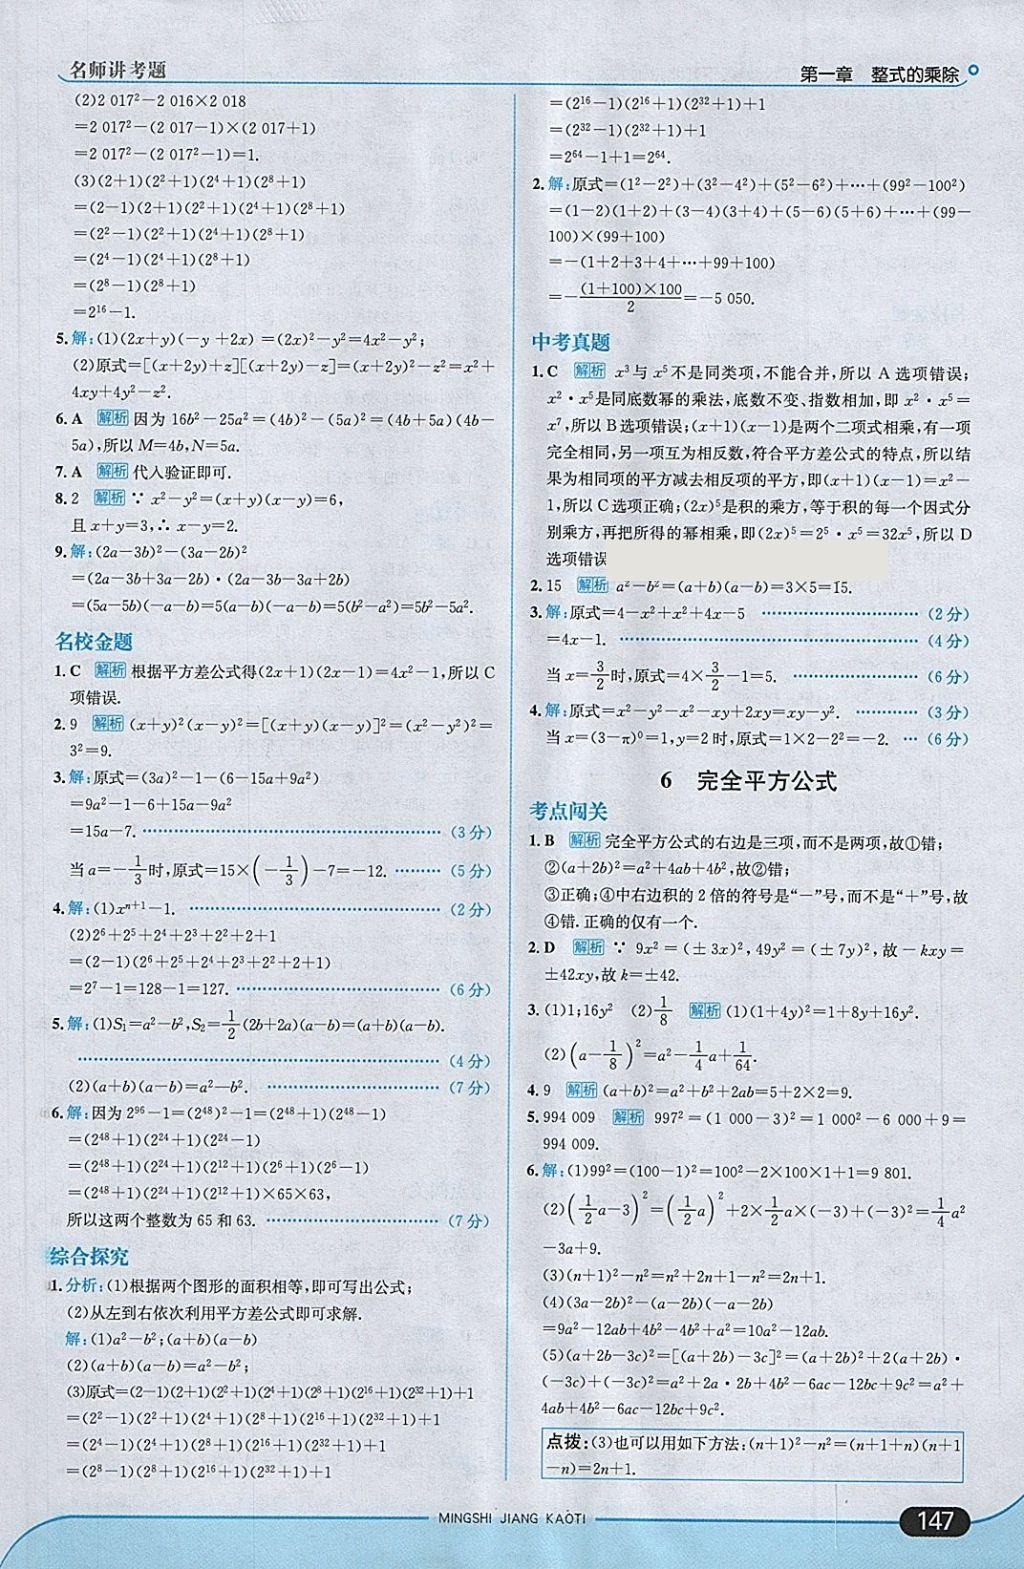 名师讲考题
第一章　整式的乘除
(2)2 017²－2 016×2 018
＝2 017²－(2 017－1)×(2 017＋1)
＝2 017²－(2 017²－1)＝1.
(3)(2＋1)(2²＋1)(2⁴＋1)(2⁸＋1)
＝(2－1)(2＋1)(2²＋1)(2⁴＋1)(2⁸＋1)
＝(2²－1)(2²＋1)(2⁴＋1)(2⁸＋1)
＝(2⁴－1)(2⁴＋1)(2⁸＋1)
＝(2⁸－1)(2⁸＋1)
＝2¹⁶－1.
5.解:(1)(2x＋y)(－y ＋2x) ＝(2x)²－y²＝4x²－y²;
(2)原式＝[(x＋2y)＋z][(x＋2y)－z]＝(x＋2y)²－z²＝x²＋
4xy＋4y²－z².
6.A 解析 因为 16b²－25a²＝(4b)²－(5a)²＝(4b＋5a)(4b－
5a),所以 M＝4b,N＝5a.
7.A 解析 代入验证即可.
8.2 解析 ∵ x²－y²＝(x＋y)(x－y)＝6,
且 x＋y＝3,∴ x－y＝2.
9.解:(2a－3b)²－(3a－2b)²
＝(2a－3b＋3a－2b)·(2a－3b－3a＋2b)
＝(5a－5b)(－a－b)＝5(a－b)(－a－b)＝5(b²－a²)＝5b²－5a².
名校金题
1.C 解析 根据平方差公式得(2x＋1)(2x－1)＝4x²－1,所以 C
项错误.
2.9 解析 (x＋y)²(x－y)²＝[(x＋y)(x－y)]²＝(x²－y²)²＝
3²＝9.
3.解:原式＝(3a)²－1－(6－15a＋9a²)
＝9a²－1－6＋15a－9a²
＝15a－7. ……(3 分)
当 a＝－1/3时,原式＝15×(－1/3)－7＝－12. ……(5 分)
4.解:(1)xⁿ⁺¹－1. ……(2 分)
(2)2⁶＋2⁵＋2⁴＋2³＋2²＋2＋1
＝(2－1)(2⁶＋2⁵＋2⁴＋2³＋2²＋2＋1)
＝2⁷－1＝128－1＝127. ……(6 分)
5.解:(1)S₁＝a²－b²,S₂＝1/2(2b＋2a)(a－b)＝(a＋b)(a－b).
……(4 分)
(2)(a＋b)(a－b)＝a²－b². ……(7 分)
6.解:因为 2⁹⁶－1＝(2⁴⁸)²－1＝(2⁴⁸＋1)(2⁴⁸－1)
＝(2⁴⁸＋1)(2²⁴＋1)(2²⁴－1)
＝(2⁴⁸＋1)(2²⁴＋1)(2¹²＋1)(2⁶＋1)(2⁶－1)
＝(2⁴⁸＋1)(2²⁴＋1)(2¹²＋1)×65×63,
所以这两个整数为 65 和 63. ……(7 分)
综合探究
1.分析:(1)根据两个图形的面积相等,即可写出公式;
(2)从左到右依次利用平方差公式即可求解.
解:(1)a²－b²;(a＋b)(a－b)
(2)(a＋b)(a－b)＝a²－b²;
(3)原式＝(2－1)(2＋1)(2²＋1)(2⁴＋1)(2⁸＋1)(2¹⁶＋1)(2³²＋1)＋1
＝(2²－1)(2²＋1)(2⁴＋1)(2⁸＋1)(2¹⁶＋1)(2³²＋1)＋1
＝(2⁴－1)(2⁴＋1)(2⁸＋1)(2¹⁶＋1)(2³²＋1)＋1
＝(2⁸－1)(2⁸＋1)(2¹⁶＋1)(2³²＋1)＋1
＝(2¹⁶－1)(2¹⁶＋1)(2³²＋1)＋1
＝(2³²－1)(2³²＋1)＋1
＝2⁶⁴－1＋1＝2⁶⁴.
2.解:原式＝(1²－2²)＋(3²－4²)＋(5²－6²)＋…＋(99²－100²)
＝(1－2)(1＋2)＋(3－4)(3＋4)＋(5－6)(5＋6)＋…＋(99－
100)×(99＋100)
＝－(1＋2＋3＋4＋…＋99＋100)
＝－(1＋100)×100/2＝－5 050.
中考真题
1.C 解析 x³与 x⁵不是同类项,不能合并,所以 A 选项错误;
x²·x⁵是同底数幂的乘法,底数不变、指数相加,即 x²·x⁵＝
x⁷,所以 B选项错误;(x＋1)(x－1)是两个二项式相乘,有一项
完全相同,另一项互为相反数,符合平方差公式的特点,所以结
果为相同项的平方减去相反项的平方,即(x＋1)(x－1)＝x²－
1,所以 C选项正确;(2x)⁵是积的乘方,等于积的每一个因式分
别乘方,再把所得的幂相乘,即(2x)⁵＝2⁵·x⁵＝32x⁵,所以 D
选项错误
2.15 解析 a²－b²＝(a＋b)(a－b)＝3×5＝15.
3.解:原式＝4－x²＋x²＋4x－5 ……(2 分)
＝4x－1. ……(4 分)
当 x＝3/2时,原式＝4×3/2－1＝5. ……(6 分)
4.解:原式＝x²－y²－x²－xy＋2xy＝xy－y². ……(3 分)
当 x＝(3－π)⁰＝1,y＝2 时,原式＝1×2－2²＝－2. …(6 分)
6　完全平方公式
考点闯关
1.B 解析 完全平方公式的右边是三项,而不是两项,故①错;
②(a＋2b)²＝a²＋4ab＋4b²,故②错;
③正确;④中右边积的 2 倍的符号是“－”号,而不是“＋”号,故
④错. 正确的仅有一个.
2.D 解析 ∵ 9x²＝(±3x)²,49y²＝(±7y)²,故－kxy＝
±42xy,故 k＝±42.
3.(1)1;16y² (2)1/8 解析 (1)(1＋4y)²＝1＋8y＋16y².
(2)(a－1/8)²＝a²－1/4a＋1/64.
4.9 解析 (a＋b)²＝a²＋b²＋2ab＝5＋2×2＝9.
5.994 009 解析 997²＝(1 000－3)²＝1 000²－6 000＋9＝
994 009.
6.解:(1)99²＝(100－1)²＝100²－2×100×1＋1＝9 801.
(2)(1/2a－3)²＝(1/2a)²＋2×1/2a×(－3)＋(－3)²＝1/4a²
－3a＋9.
(3)(n＋1)²－n²＝n²＋2n＋1－n²＝2n＋1.
(4)(3a－2b)²－(a－2b)(－a－2b)
＝9a²－12ab＋4b²－4b²＋a²＝10a²－12ab.
(5)(a＋2b－3c)²＝[(a＋2b)－3c]²＝(a＋2b)²＋2(a＋2b)·
(－3c)＋(－3c)²＝a²＋2a·2b＋4b²－6ac－12bc＋9c²＝a²＋
4ab＋4b²－6ac－12bc＋9c².
点拨:(3)也可以用如下方法:(n＋1)²－n²＝(n＋1＋n)(n＋1
－n)＝2n＋1.
MINGSHI JIANG KAOTI
147